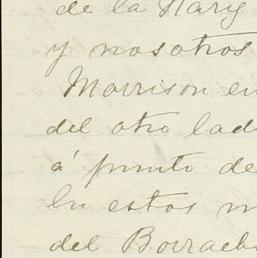 de la Nary
y nosotros
Morrison en
del otro lad
á punto de
En estos m
del Borrach